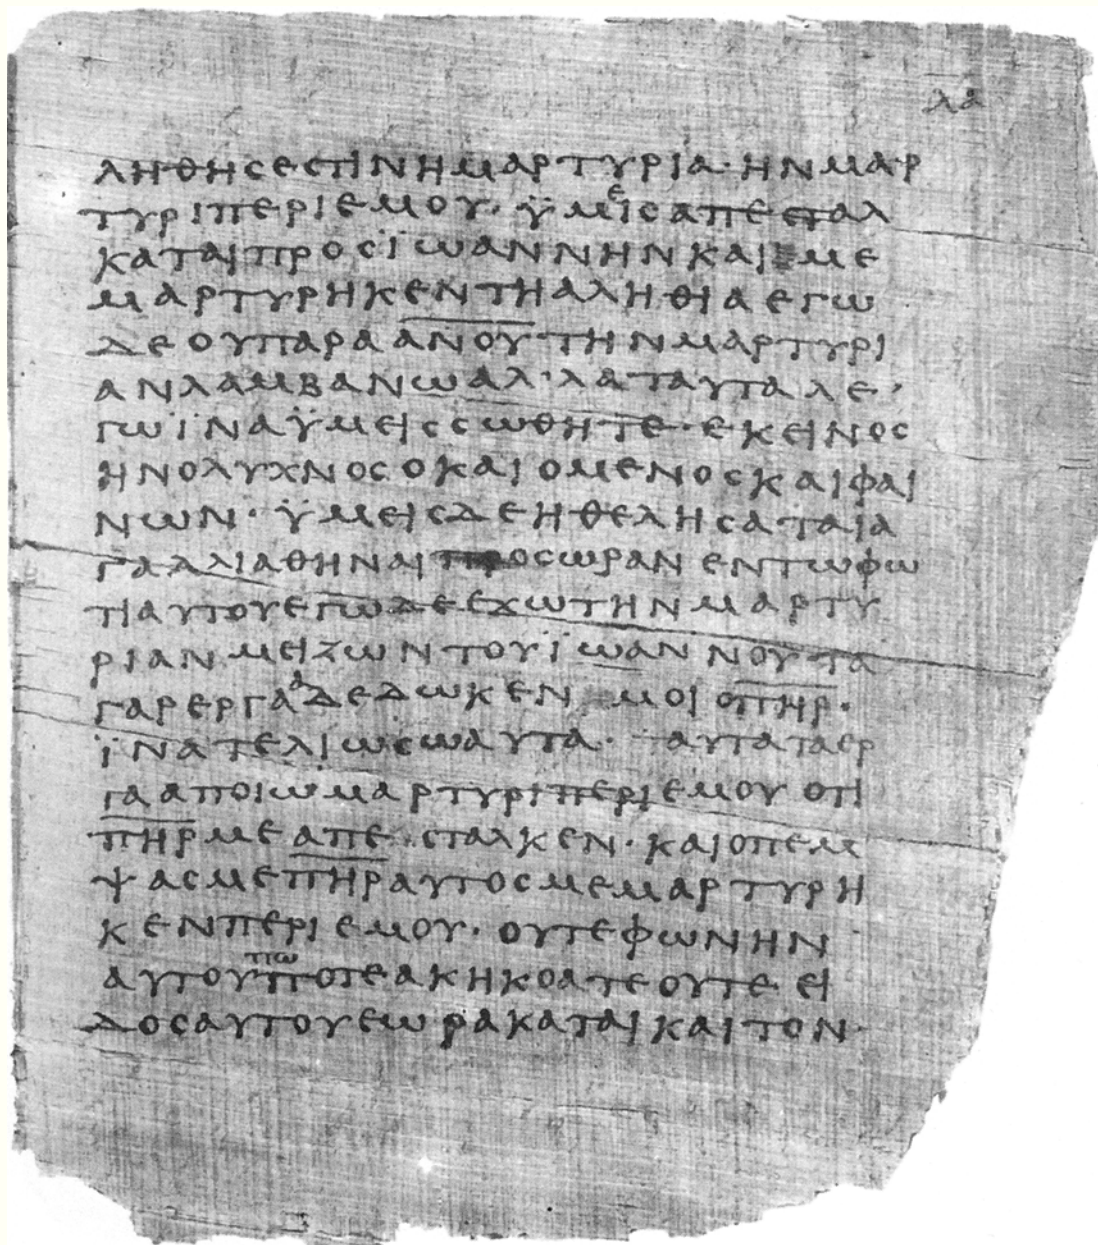 λα
ληθηςεςτινημαρτυρια·ηνμαρ
τυριπεριεμου·ϋμ`ε´ιςαπεςταλ
καταιπροςϊωαννηνκαιμε
μαρτυρηκεντηαληθιαεγω
δεουπαραα̅ν̅ο̅υ̅τηνμαρτυρι
ανλαμβανωαλ·λαταυταλε·
γωϊναϋμειςςωθητε·εκεινος
ηνολυχνοςοκαιομενοςκαιφαι
νων·ϋμειςδεηθεληςαταια
γαλλιαθηναιπροςωρανεντωφω
τιαυτουεγωδεεχωτηνμαρτυ
ριανμειζωντουϊωαννουτα
γαρεργα`α´δεδωκενμοιοπ̅η̅ρ̅·
ϊνατελιωςωαυτα·αυταταερ
γααποιωμαρτυριπεριεμουοτι
π̅η̅ρ̅μεα̅π̅ε̅·ςταλκεν·καιοπεμ
ψαςμεπ̅η̅ρ̅αυτοςμεμαρτυρη
κενπεριεμου·ουτεφωνην
αυτου`πω´ποτεακηκοατεουτεει
δοςαυτουεωρακαταικαιτον·